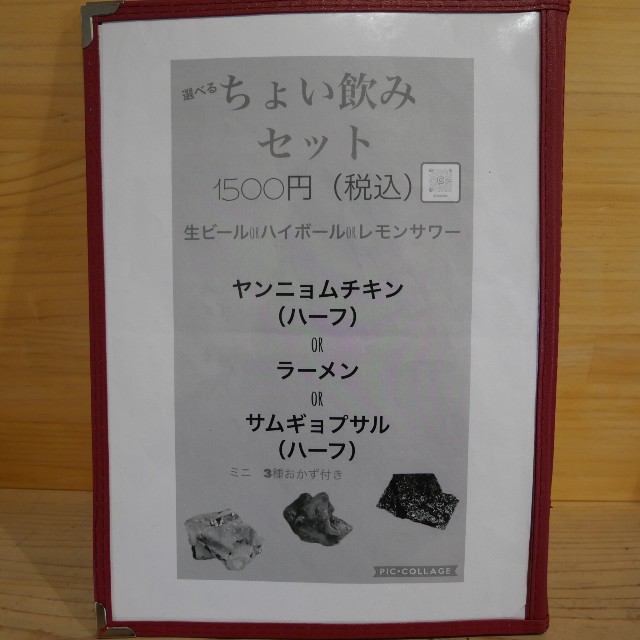 選べる ちょい飲み
セット
1500円（税込）
生ビールORハイボールORレモンサワー
ヤンニョムチキン
（ハーフ）
OR
ラーメン
OR
サムギョプサル
（ハーフ）
ミニ 3種おかず付き
PIC•COLLAGE